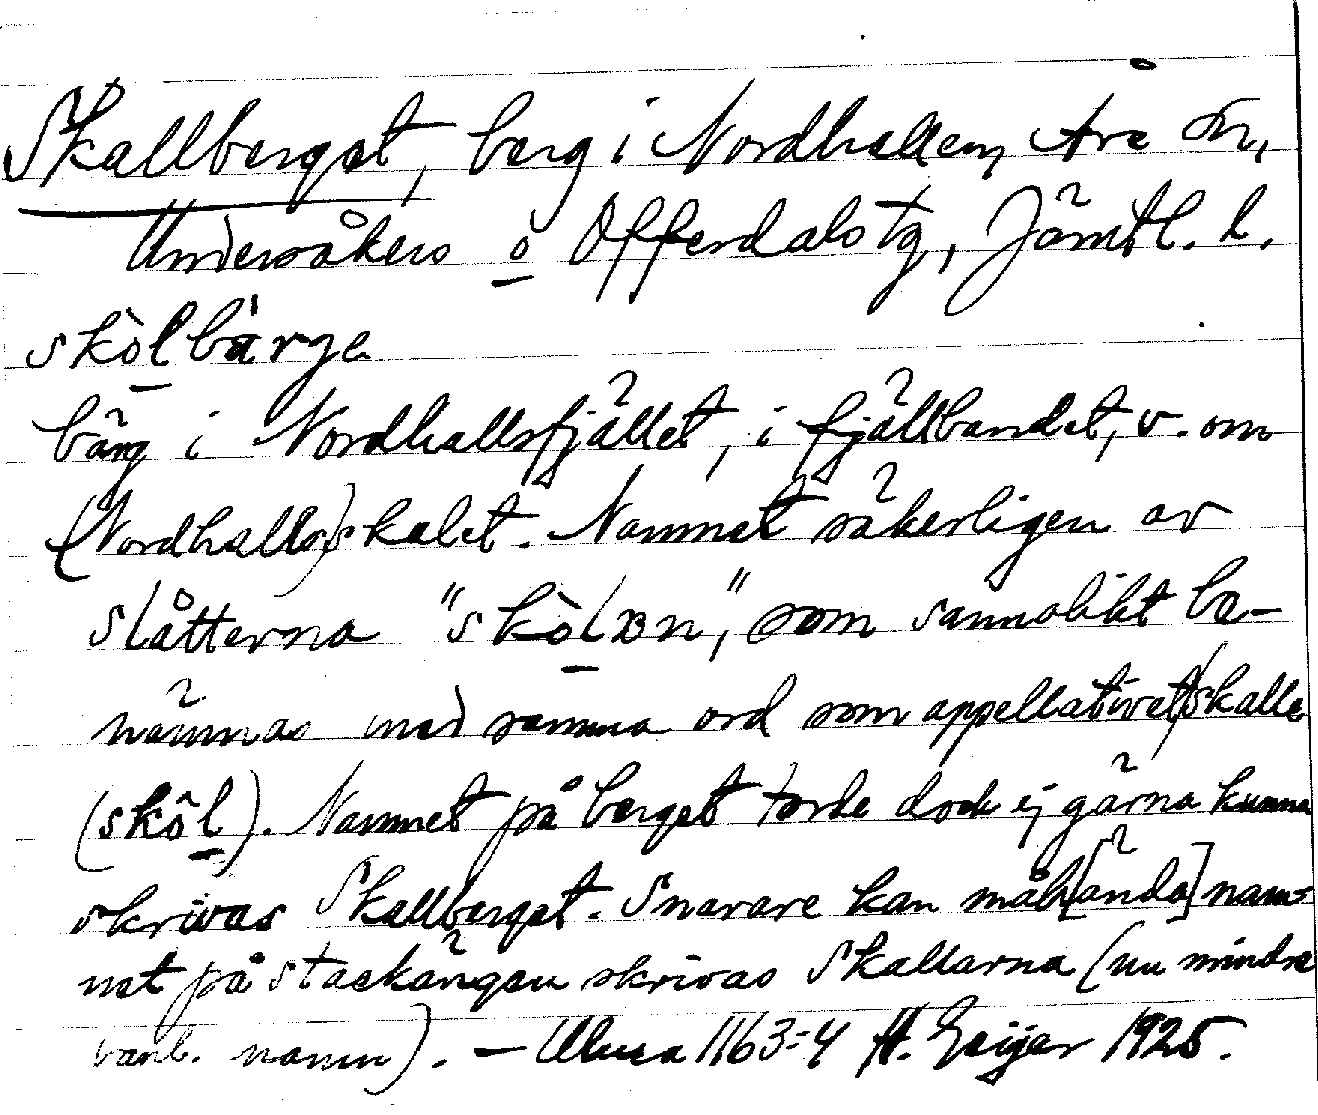 Skallberget, berg i Nordhallen, Åre sn,
Undersåkers o Offerdals tg, Jämtl. l.
skòlbàrge
bärg i Nordhallsfjället, i fjällbandet, v. om
(Nordhalls)skalet. Namnet säkerligen av
slåtterna "skòlɐn", som sannolikt be-
nämnas med samma ord som appellativet skalle
(skôl). Namnet på berget torde dock ej gärna kunna
skrivas Skallberget. Snarare kan måh[ända] nam-
net på stackängen skrivas Skallarna (nu mindre
vanl. namn). — Uluca 1163:4 H. Geijer 1925.